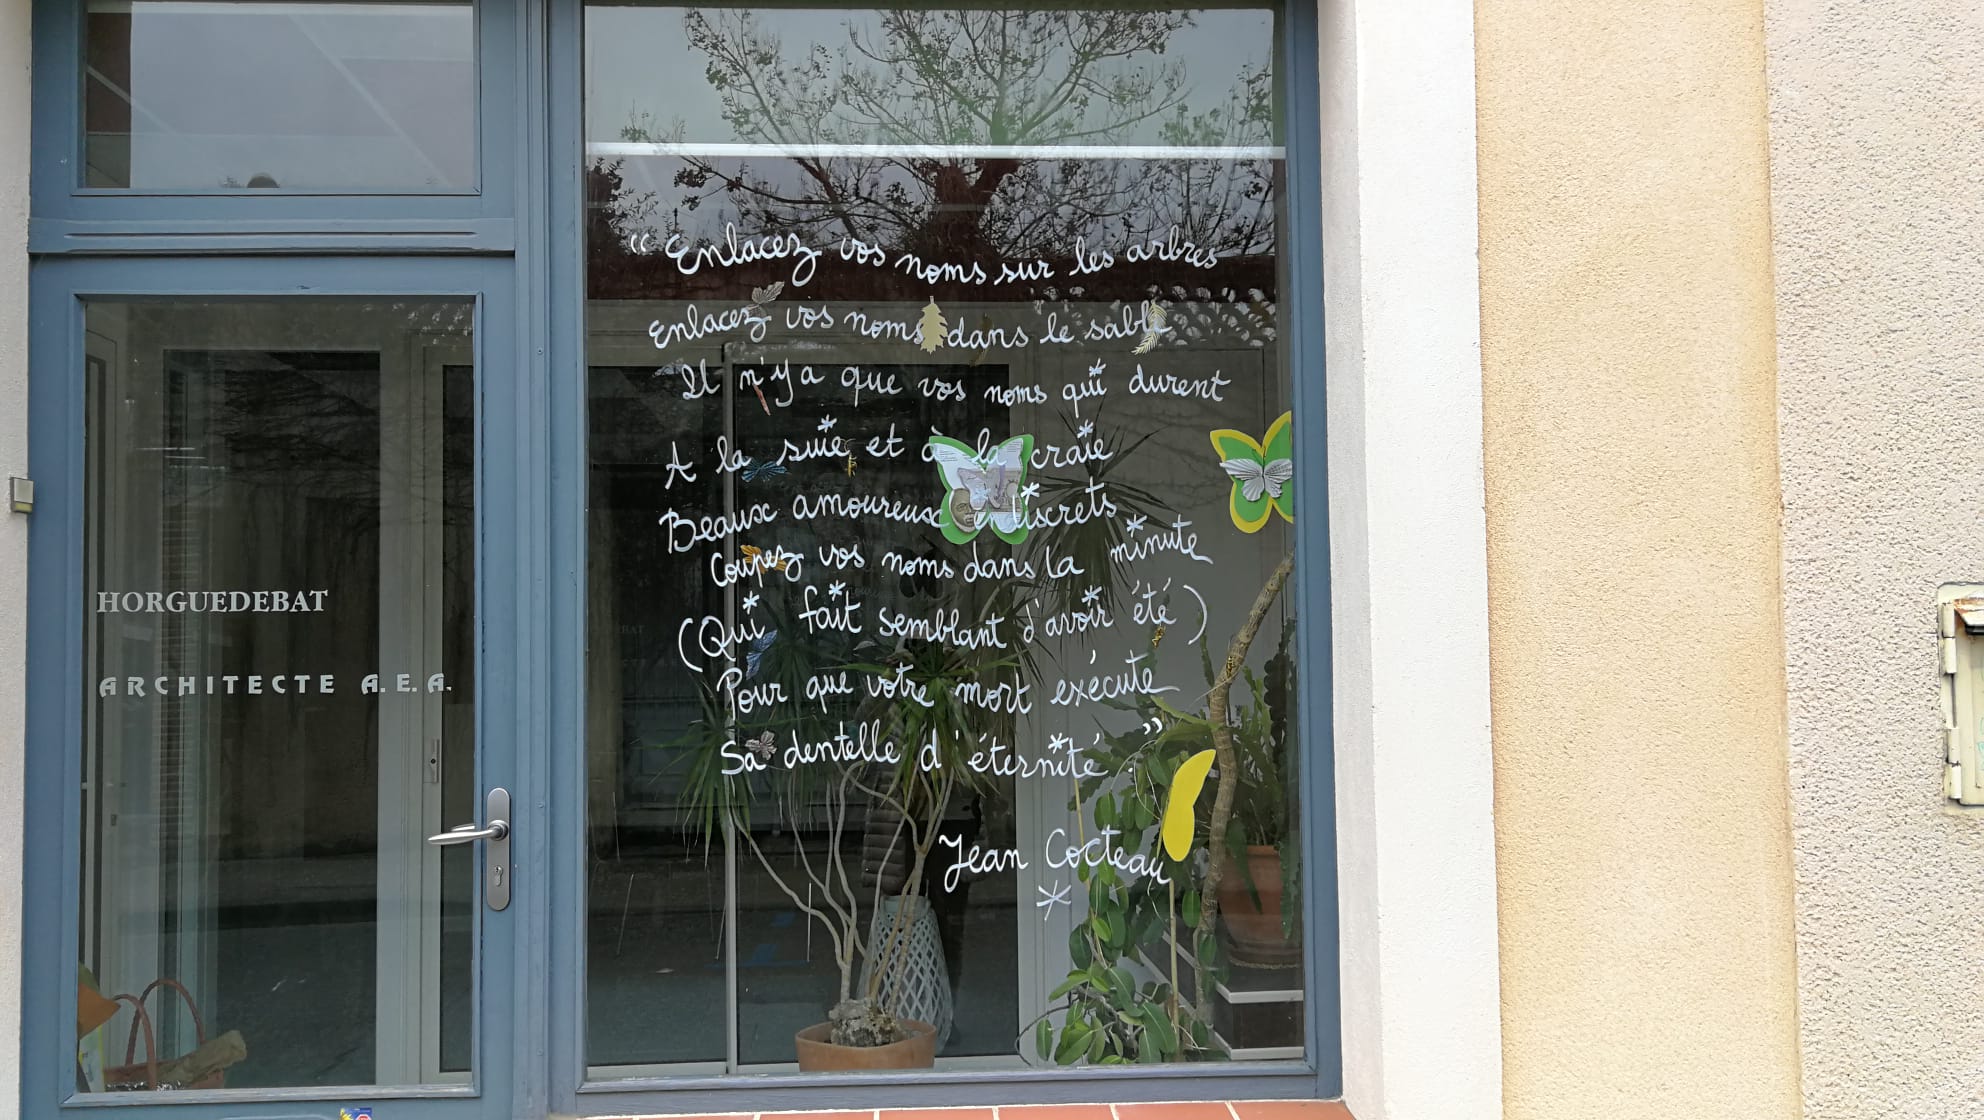 HORGUEDEBAT
ARCHITECTE A.E.A.
“Enlacez vos noms sur les arbres
Enlacez vos noms dans le sable
Il n'y a que vos noms qui durent
A la suie et à la craie
Beaux amoureux indiscrets
Coupez vos noms dans la minute
(Qui fait semblant d'avoir été)
Pour que votre mort exécute
Sa dentelle d'éternité.”
Jean Cocteau